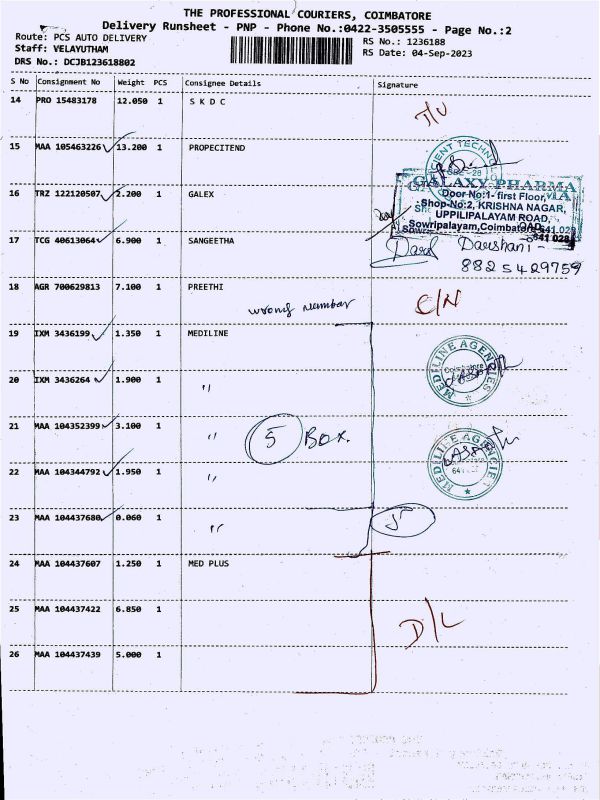 THE PROFESSIONAL COURIERS, COIMBATORE
Delivery Runsheet - PNP - Phone No.:0422-3505555 - Page No.:2
Route: PCS AUTO DELIVERY
RS No.: 1236188
Staff: VELAYUTHAM
RS Date: 04-Sep-2023
DRS No.: DCJB123618802
S No Consignment No Weight PCS Consignee Details Signature
14 PRO 15483178 12.050 1 S K D C
15 MAA 105463226 13.200 1 PROPECITEND
16 TRZ 122120507 2.200 1 GALEX
GALAXY PHARMA
Door-No:1- first Floor,
Shop-No:2, KRISHNA NAGAR,
UPPILIPALAYAM ROAD,
Sowripalayam,Coimbatore-641 028
17 TCG 40613064 6.900 1 SANGEETHA
Darshani
8825429759
18 AGR 700629813 7.100 1 PREETHI
wrong number C/N
19 IXM 3436199 1.350 1 MEDILINE
MEDILINE AGENCIES
20 IXM 3436264 1.900 1 "
21 MAA 104352399 3.100 1 "
5 Box.
MEDILINE AGENCIES
22 MAA 104344792 1.950 1 "
23 MAA 104437680 0.060 1 "
5
24 MAA 104437607 1.250 1 MED PLUS
25 MAA 104437422 6.850 1
D/L
26 MAA 104437439 5.000 1